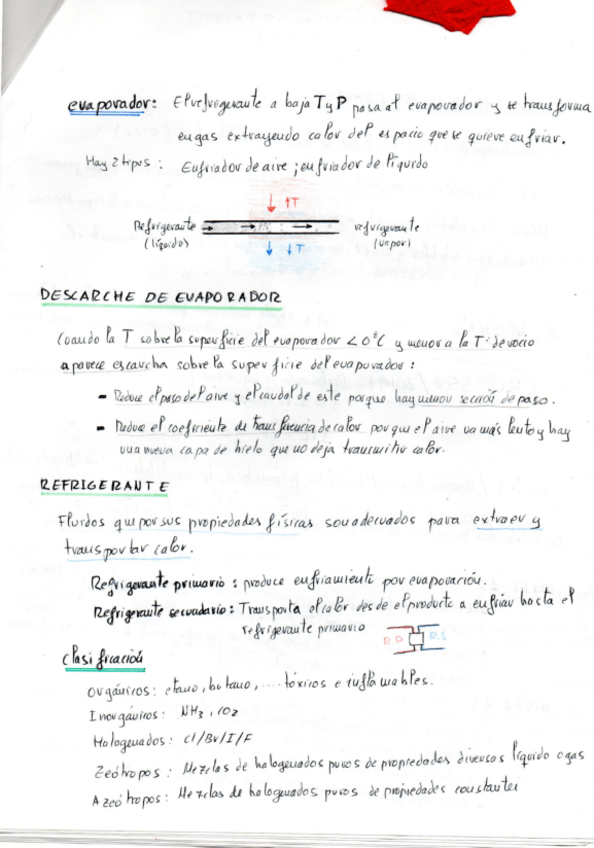 evaporador: El refrigerante a baja T y P pasa al evaporador y se transforma
en gas extrayendo calor del espacio que se quiere enfriar.
Hay 2 tipos: Enfriador de aire; enfriador de líquido
↑T
Refrigerante
(líquido)
refrigerante
(vapor)
↓T
DESCARCHE DE EVAPORADOR
Cuando la T sobre la superficie del evaporador < 0ºC y menor a la Tª de rocio
aparece escarcha sobre la superficie del evaporador:
- Reduce el paso del aire y el caudal de este porque hay menou sección de paso.
- Reduce el coeficiente de transferencia de calor porque el aire va más lento y hay
una nueva capa de hielo que no deja transmitir calor.
REFRIGERANTE
Fluidos que por sus propiedades físicas son adecuados para extraer y
transportar calor.
Refrigerante primario: produce enfriamiento por evaporación.
Refrigerante secundario: Transporta el calor desde el producto a enfriar hasta el
refrigerante primario
R.P R.S
Clasificación
Orgánicos: etano, butano, .... tóxicos e inflamables.
Inorgánicos: NH3, CO2
Halogenados: Cl/Br/I/F
Zeótropos: Mezclas de halogenados puros de propiedades diversas líquido o gas
Azeótropos: Mezclas de halogenados puros de propiedades constantes